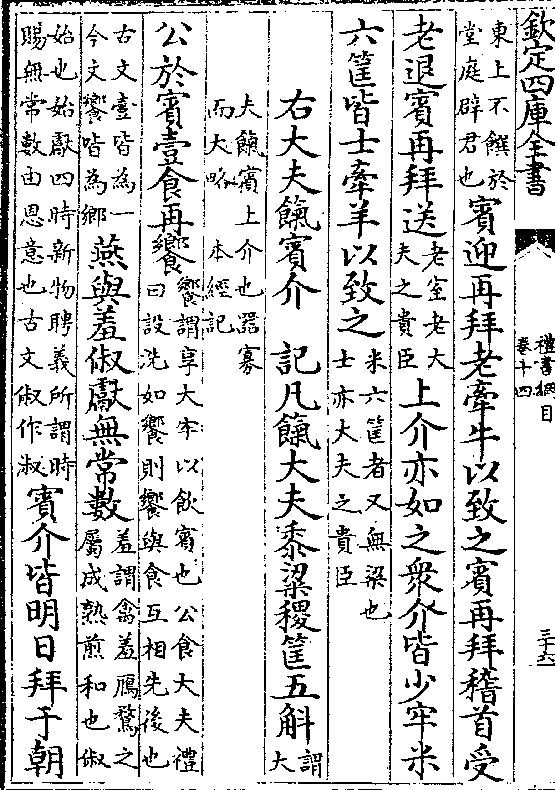 欽定四庫全書
禮書綱目
卷十四
三十六
東上不饌於
堂庭辟君也
賓迎再拜老牽牛以致之賓再拜稽首受
老退賓再拜送
老室老大
夫之貴臣
上介亦如之衆介皆少牢米
六筐皆士牽羊以致之
米六筐者又無粱也
士亦大夫之貴臣
右大夫餼賓介　記凡餼大夫黍粱稷筐五斛
謂
大
夫餼賓上介也器寡
而大略　本經記
公於賓壹食再饗
饗謂享大牢以飲賓也公食大夫禮
曰設洗如饗則饗與食互相先後也
古文壹皆為一
今文饗皆為鄉
燕與羞俶獻無常數
羞謂禽羞鴈鶩之
屬成熟煎和也俶
始也始獻四時新物聘義所謂時
賜無常數由恩意也古文俶作淑
賓介皆明日拜于朝